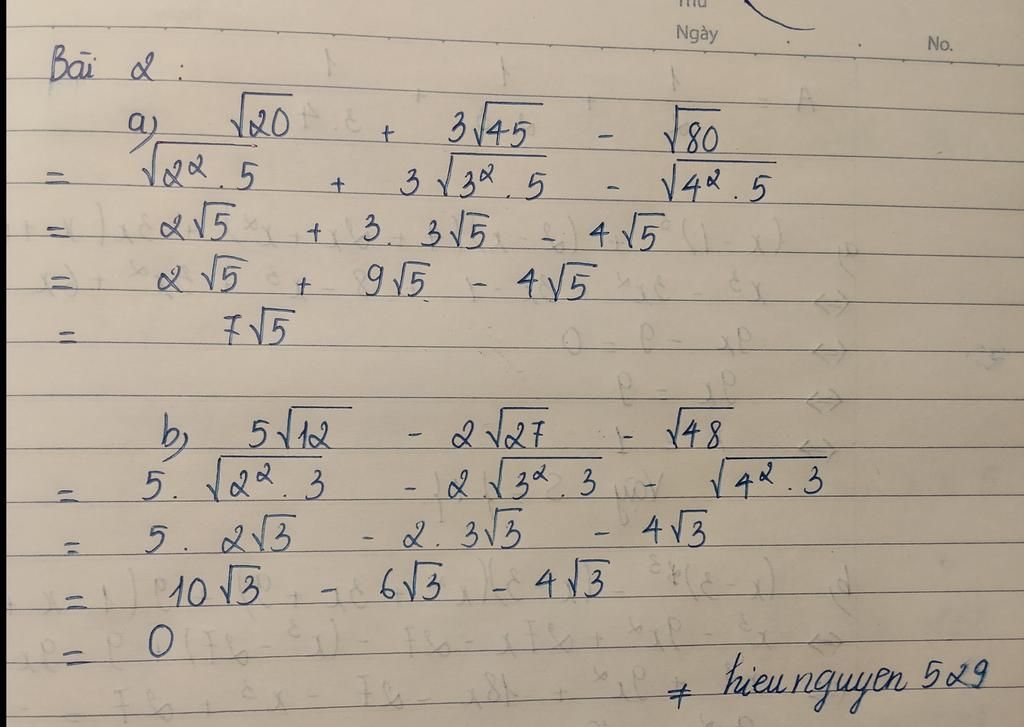 Ngày
No.
Bài 2 :
a) √20 + 3√45 - √80
= √2² . 5 + 3 √3² . 5 - √4² . 5
= 2√5 + 3. 3√5 - 4√5
= 2√5 + 9√5 - 4√5
= 7√5
b) 5√12 - 2√27 - √48
= 5. √2² . 3 - 2.√3² . 3 - √4² . 3
= 5. 2√3 - 2. 3√3 - 4√3
= 10√3 - 6√3 - 4√3
= 0
hieunguyen 529